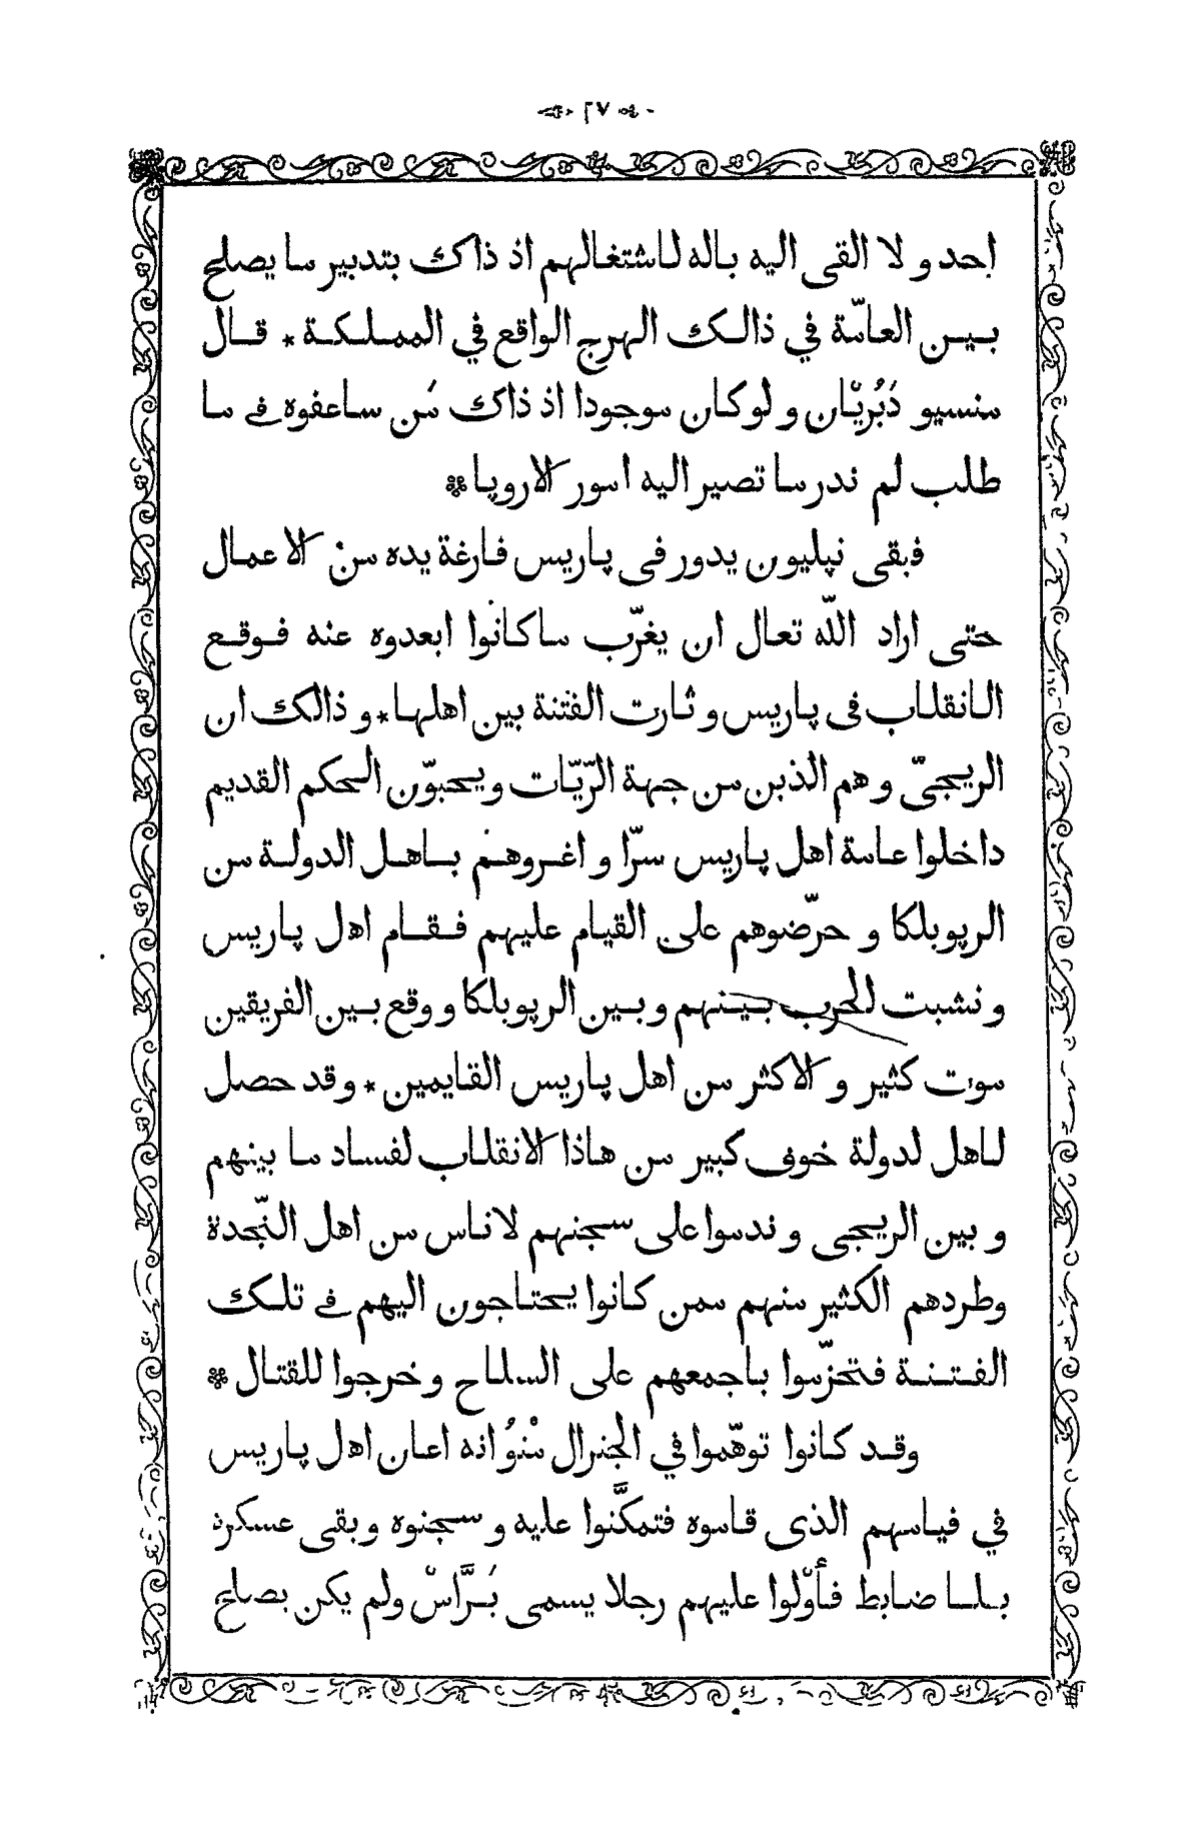 ٢٧
احد و لا القى اليه باله لاشتغالهم اذ ذاك بتدبير ما يصلح
بين العامّة في ذالك الهرج الواقع في المملكة * قال
منسيو دَبُريْان و لو كان موجودا اذ ذاك مَن ساعفوه في ما
طلب لم ندر ما تصير اليه امور الاروپا *
فبقى نپليون يدور فى پاريس فارغة يده من الاعمال
حتى اراد اللّه تعال ان يغرّب ما كانوا ابعدوه عنه فوقع
الانقلاب فى پاريس و ثارت الفتنة بين اهلها * و ذالك ان
الريجىّ و هم الذين من جهة الرّيّات و يحبوّن الحكم القديم
داخلوا عامة اهل پاريس سرّا و اغروهم باهل الدولة من
الرپوبلكا و حرّضوهم على القيام عليهم فقام اهل پاريس
و نشبت الحرب بينهم و بين الرپوبلكا و وقع بين الفريقين
موت كثير و الاكثر من اهل پاريس القايمين * و قد حصل
لاهل لدولة خوف كبير من هاذا الانقلاب لفساد ما بينهم
و بين الريجى و ندموا على سجنهم لاناس من اهل النّجدة
وطردهم الكثير منهم ممن كانوا يحتاجون اليهم في تلك
الفتنة فتحزّموا باجمعهم على السلاح و خرجوا للقتال *
وقد كانوا توهّموا في الجنرال مْنوُ انه اعان اهل پاريس
في قيامهم الذى قاموه فتمكَّنوا عليه و سجنوه و بقى عسكره
بلا ضابط فأوّلوا عليهم رجلا يسمى بَرَّاسْ ولم يكن يصلح